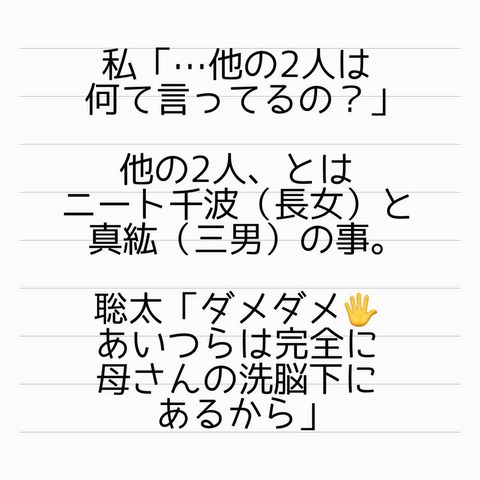 私「…他の2人は
何て言ってるの？」
他の2人、とは
ニート千波（長女）と
真紘（三男）の事。
聡太「ダメダメ🖐
あいつらは完全に
母さんの洗脳下に
あるから」